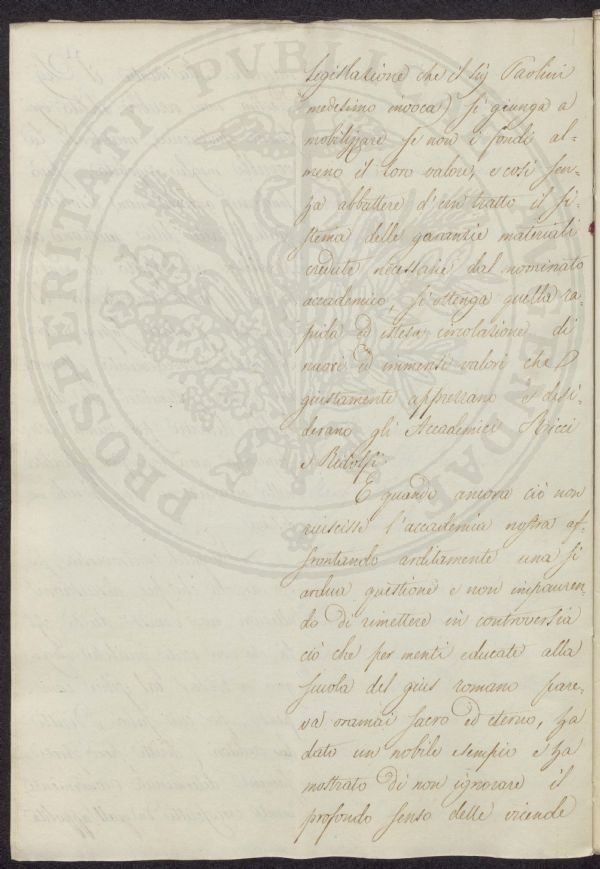 legislazione che il sig Paolini
medesimo invoca) si giunga a
mobilizzare se non i fondi al-
meno il loro valore, e così sen-
za abbattere d'un tratto il si-
stema delle garanzie materiali
credute necessarie dal nominato
accademico, si ottenga quella ra-
pida ed estesa circolazione di
nuovi ed immensi valori che
giustamente apprezzano e desi-
derano gli Accademici Ricci
e Ridolfi.
E quando ancora ciò non
riescisse l'accademia nostra af-
frontando arditamente una sì
ardua questione e non impauren-
do di rimettere in controversia
ciò che per menti educate alla
scuola del gius romano pare-
va oramai sacro ed eterno, ha
dato un nobile esempio e ha
mostrato di non ignorare il
profondo senso delle vicende
PROSPERITATI PVBLICAE AVGENDAE